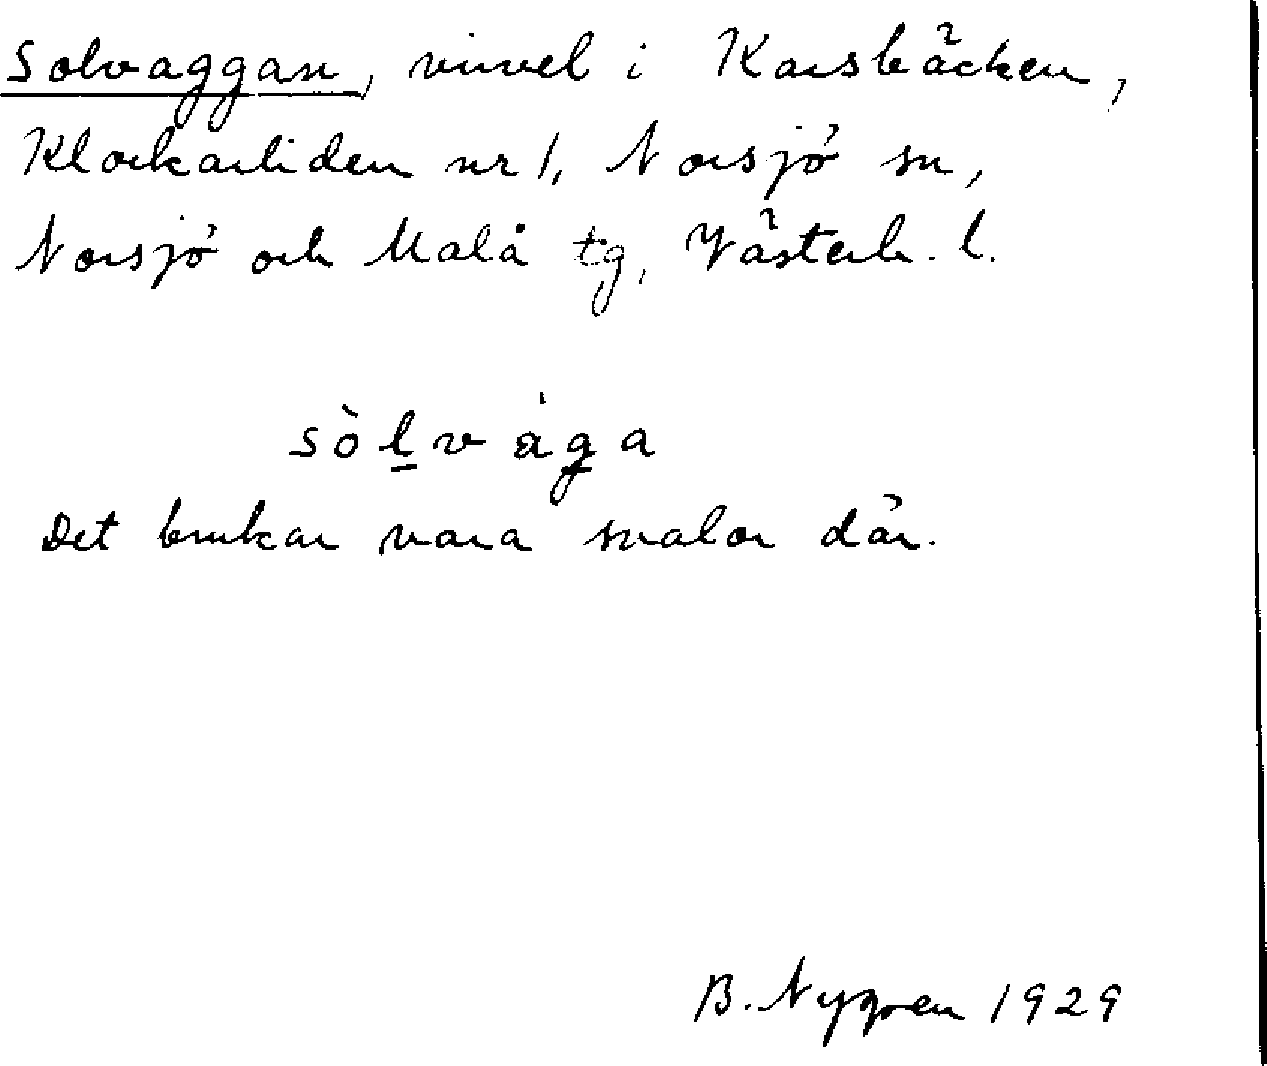 Solvaggan, virvel i Karsbäcken,
Klockarliden nr 1, Norsjö sn,
Norsjö och Malå tg, Västerb. l.
sòḻvága
Det brukar vara svalor där.
B. Nygren 1929